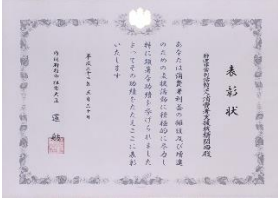 表彰状
特定非営利活動法人消費者支援機構関西殿
あなたは消費者利益の擁護及び増進
のための支援活動に積極的に尽力し
特に顕著な功績を挙げられました
よってその功績をたたえここに表彰
いたします
平成二十二年五月二十日
内閣府特命担当大臣
蓮舫